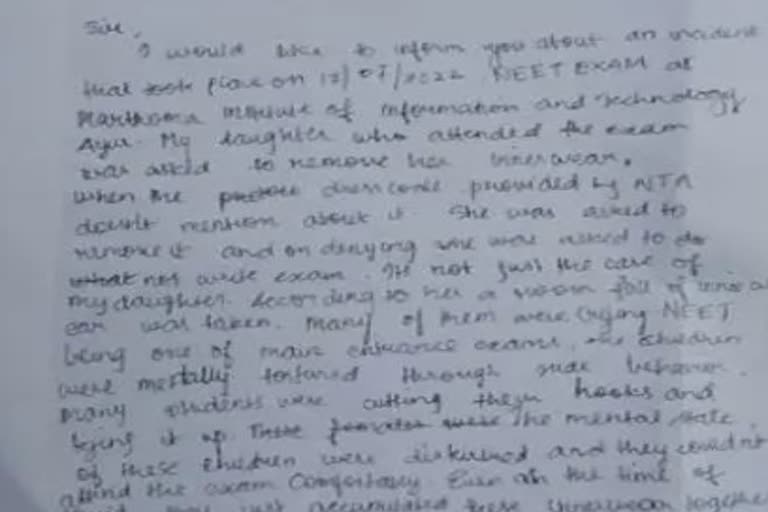 Sir,
I would like to inform you about an incident
that took place on 17/07/2022 NEET EXAM at
Marthoma Institute of Information and Technology
Ayur. My daughter who attended the exam
was asked to remove her innerwear.
When the dresscode provided by NTA
doesn't mention about it. She was asked to
remove it and on denying she was asked to do
what not write exam. It not just the case of
my daughter. According to her a room full of inner w
ear was taken. Many of them were crying NEET
being one of main entrance exams, the children
were mentally tortured through rude behavior.
Many students were cutting their hooks and
tying it up. These were the mental state
of these children were disturbed and they couldn't
attend the exam comfortably. Even at the time of
accumulated these innerwear together